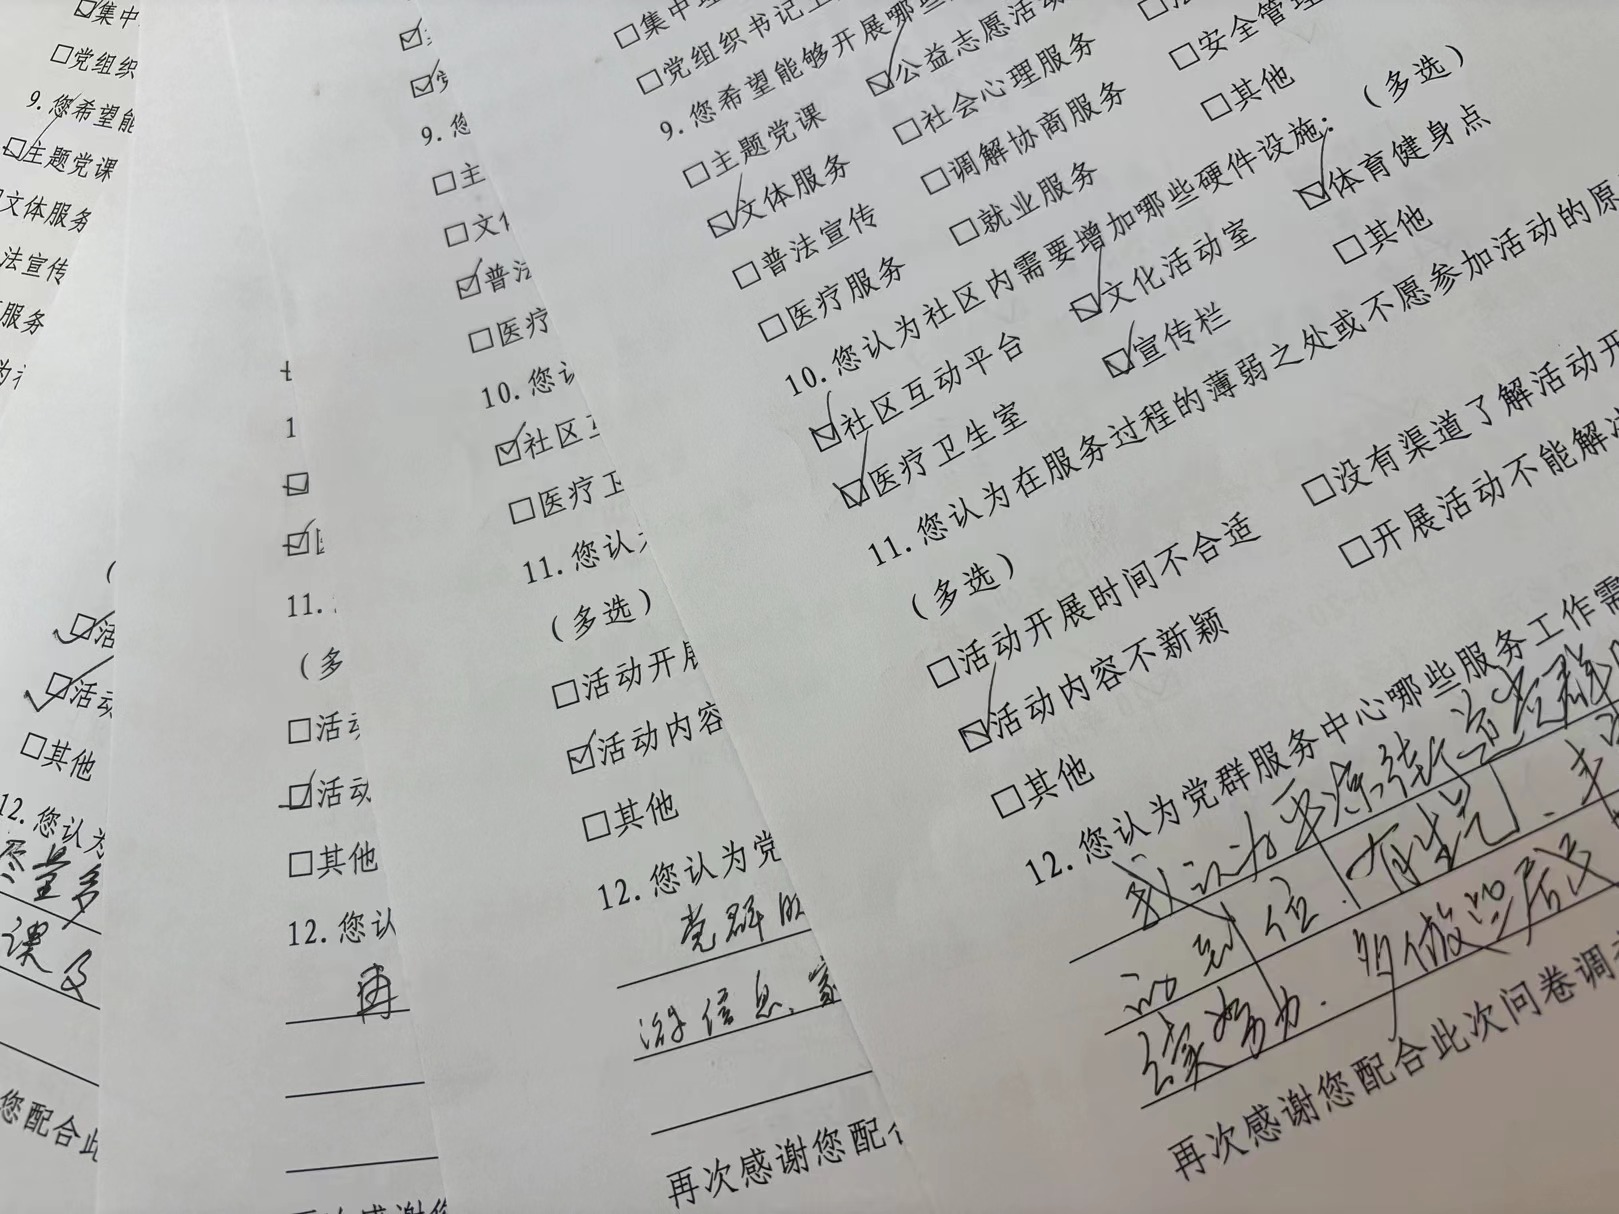 ☑集中
□党组织
9.您希望能
☑主题党课
文体服务
法宣传
服务
☑活
☑活动
□其他
12.您认为
尽量多
课及
您配合此
1
☑
11.
(多
□活动
☑活动
□其他
12.您认
再
9.您
□主
□文体
☑普法
□医疗
10.您认
☑社区互
□医疗卫
11.您认为
(多选)
□活动开展
☑活动内容
□其他
12.您认为党
党群服
游信息、宣
再次感谢您配合
□集中
□党组织书记上
9.您希望能够开展哪些
□主题党课
☑公益志愿活动
☑文体服务
□社会心理服务
□安全管理
□普法宣传
□调解协商服务
□其他
□医疗服务
□就业服务
10.您认为社区内需要增加哪些硬件设施:(多选)
☑社区互动平台
☑文化活动室
☑体育健身点
☑医疗卫生室
☑宣传栏
□其他
11.您认为在服务过程的薄弱之处或不愿参加活动的原
(多选)
□活动开展时间不合适
□没有渠道了解活动开
☑活动内容不新颖
□开展活动不能解决
□其他
12.您认为党群服务中心哪些服务工作需
我认为平凉街道党群服
到位,有生气、丰
续努力.多做些居民
再次感谢您配合此次问卷调查